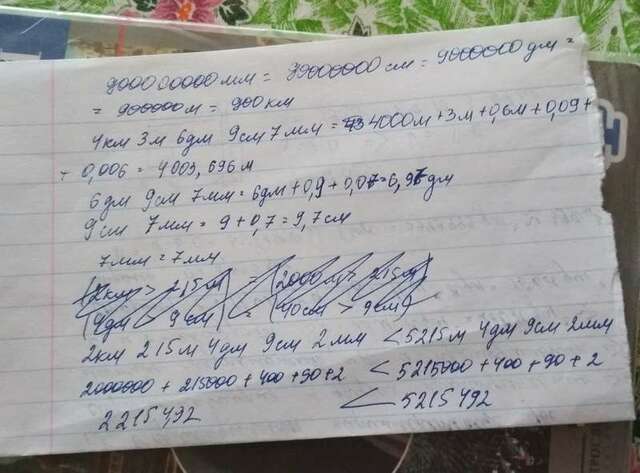 900000000мм = 90000000см = 9000000дм =
= 900000м = 900км
4км 3м 6дм 9см 7мм = 4000м + 3м + 0,6м + 0,09 +
+ 0,006 = 4003,696м
6дм 9см 7мм = 6дм + 0,9 + 0,07 = 6,97дм
9см 7мм = 9 + 0,7 = 9,7см
7мм = 7мм
(2км > 215м) = (2000м > 215м)
(4дм > 9см) = (40см > 9см)
2км 215м 4дм 9см 2мм < 5215м 4дм 9см 2мм
2000000 + 215000 + 400 + 90 + 2 < 5215000 + 400 + 90 + 2
2215492 < 5215492